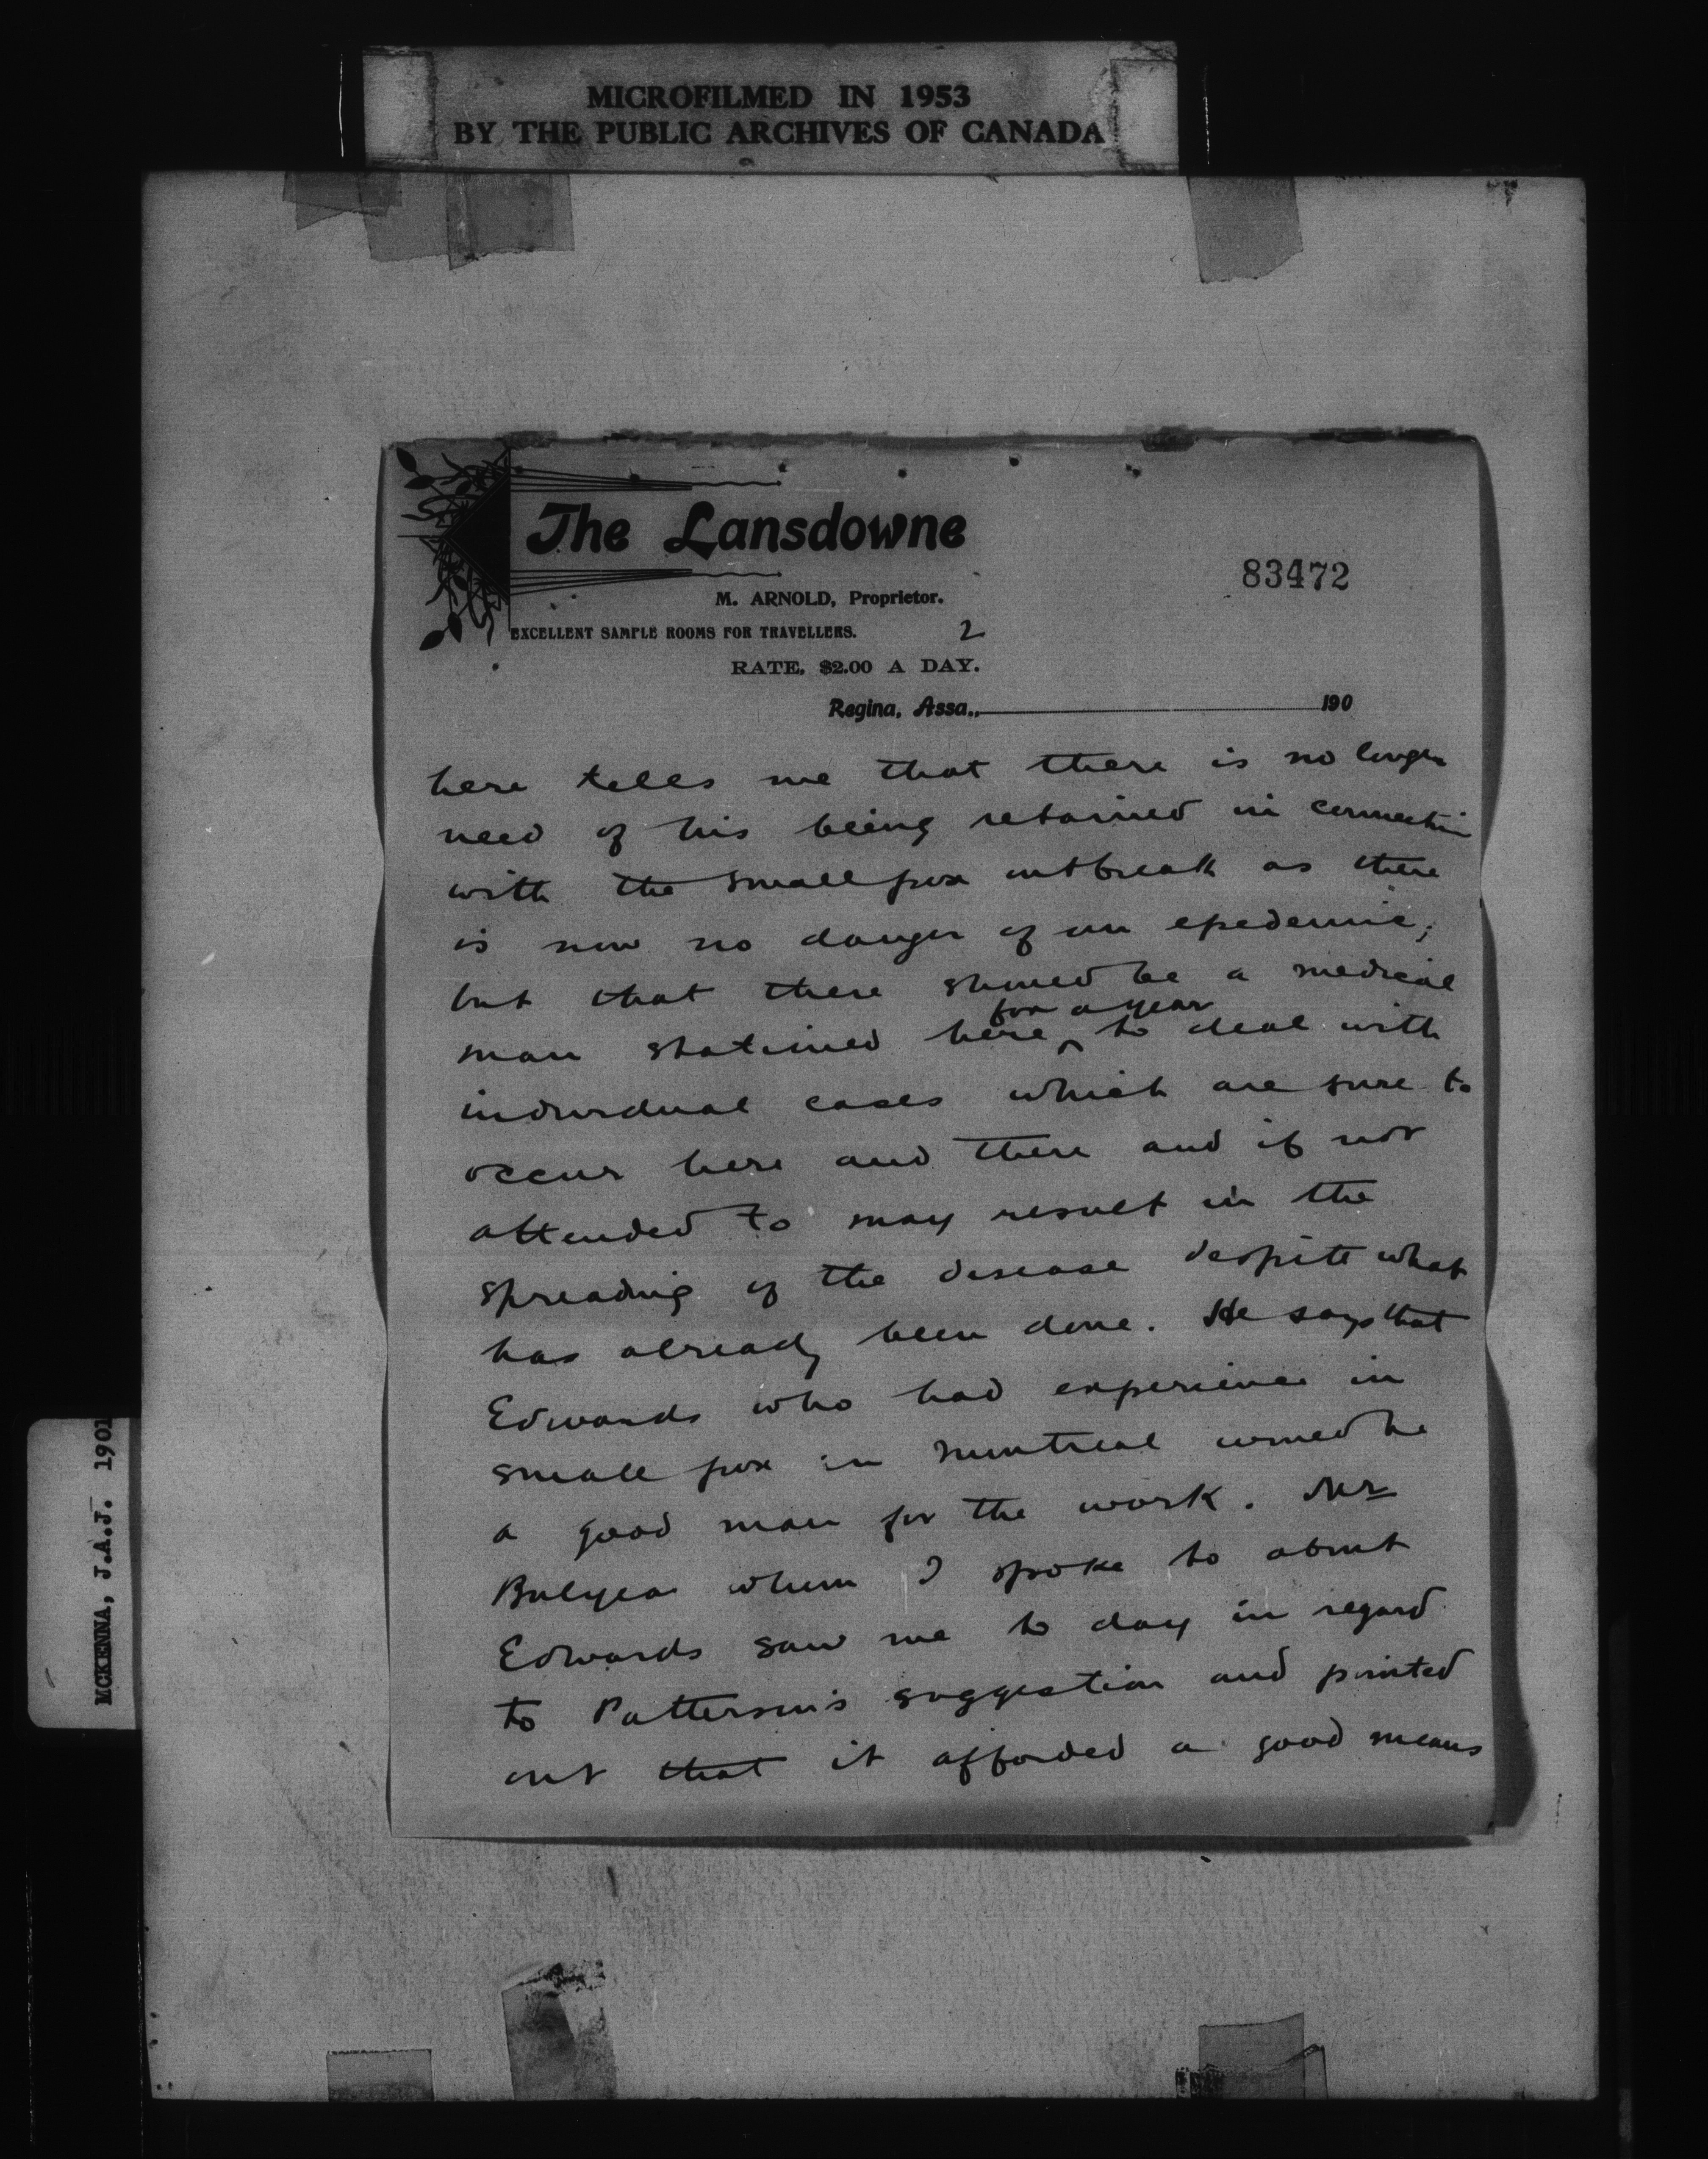 MICROFILMED IN 1953
BY THE PUBLIC ARCHIVES OF CANADA
The Lansdowne
83472
M. ARNOLD, Proprietor.
EXCELLENT SAMPLE ROOMS FOR TRAVELLERS.
2
RATE, $2.00 A DAY.
Regina, Assa., 190
here tells me that there is no longer
need of his being retained in connection
with the small pox outbreak as there
is now no danger of an epedemic;
but that there should be a medical
for a year
man stationed here ^ to deal with
individual cases which are sure to
occur here and there and if not
attended to may result in the
spreading of the disease despite what
has already been done. He says that
Edwards who had experience in
small pox in Montreal would be
a good man for the work. Mr
Bulyea whom I spoke to about
Edwards saw me to day in regard
to Patterson's suggestion and pointed
out that it afforded a good means
MCKENNA, J.A.J. 1901